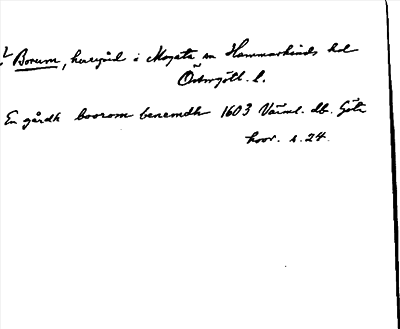 ? Borum, herrgård i Mogata sn Hammarkinds hd
Östergötl. l.
En gårdh boorom benemdh 1603 Värml. db. Göta
hovr. s. 24.